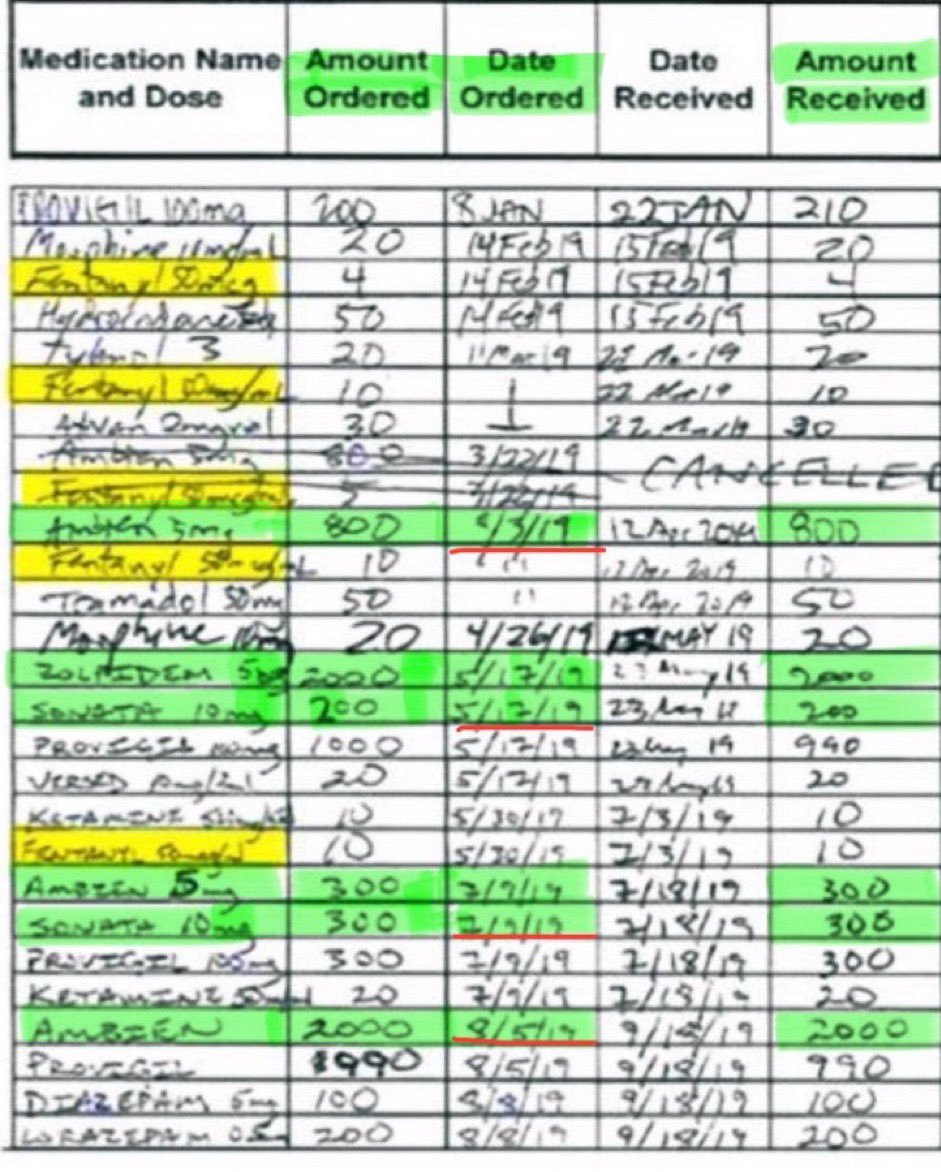 Medication Name and Dose Amount Ordered Date Ordered Date Received Amount Received
PROVIGIL 100mg 200 8 JAN 22 JAN 210
Morphine mg/mL 20 14 Feb 19 15 Feb 19 20
Fentanyl 50mcg 4 14 Feb 19 15 Feb 19 4
50 14 Feb 19 15 Feb 19 50
Tylenol 3 20 11 Mar 19 22 Mar 19 20
Fentanyl 10 22 Mar 19 10
Ativan 2mg 30 22 Mar 19 30
Ambien 5mg 800 3/22/19 CANCELLED
Fentanyl 5 3/22/19
Ambien 5mg 800 4/3/19 12 Apr 2019 800
Fentanyl 10 " 12 Apr 2019 10
Tramadol 50mg 50 " 12 Apr 2019 50
Morphine 20 4/26/19 MAY 19 20
ZOLPIDEM 5mg 2000 5/17/19 23 May 19 2000
SONATA 10mg 200 5/17/19 23 May 19 200
PROVIGIL 1000 5/17/19 23 May 19 990
VERSED 20 5/17/19 20
KETAMINE 10 5/30/19 7/3/19 10
FENTANYL 10 5/30/19 7/3/19 10
AMBIEN 5mg 300 7/9/19 7/18/19 300
SONATA 10mg 300 7/9/19 7/18/19 300
PROVIGIL 300 7/9/19 7/18/19 300
KETAMINE 20 7/9/19 7/18/19 20
AMBIEN 2000 8/5/19 9/18/19 2000
PROVIGIL 990 8/5/19 9/18/19 990
DIAZEPAM 5mg 100 8/8/19 9/18/19 100
LORAZEPAM 200 8/8/19 9/18/19 200